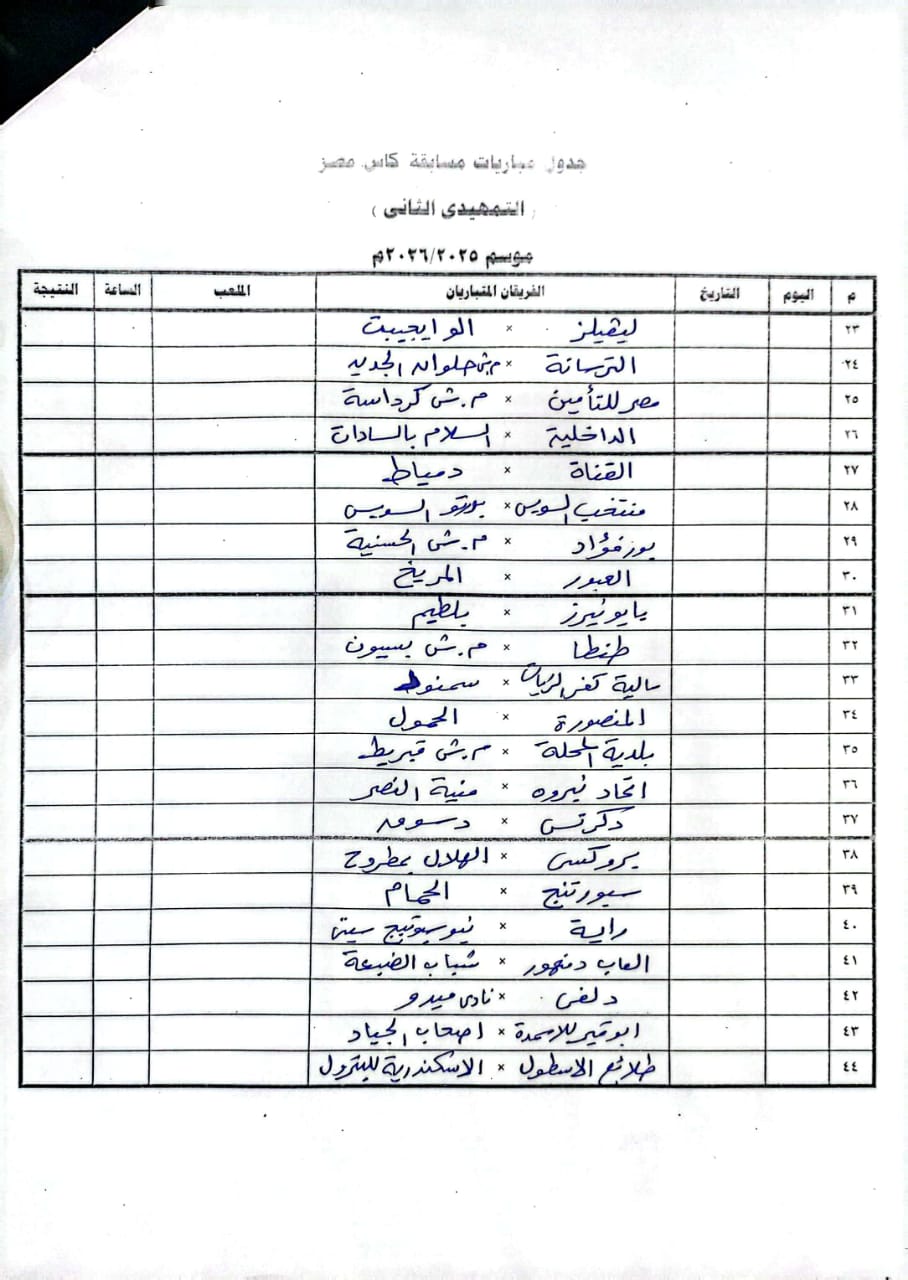 جدول مباريات مسابقة كاس مصر
( التمهيدى الثانى )
موسم ٢٠٢٦/٢٠٢٥م
م اليوم التاريخ الفريقان المتباريان الملعب الساعة النتيجة
٢٣ ليفيلز × الوايجيبت
٢٤ الترسانة × م.ش حلوان الجديد
٢٥ مصر للتأمين × م.ش كرداسة
٢٦ الداخلية × السلام بالسادات
٢٧ القناة × دمياط
٢٨ منتخب السويس × بورتو السويس
٢٩ بورفؤاد × م.ش الحسنية
٣٠ العبور × المريخ
٣١ بايونيرز × بلطيم
٣٢ طنطا × م.ش بسيون
٣٣ مالية كفر الزيات × سمنود
٣٤ المنصورة × الحمول
٣٥ بلدية المحلة × م.ش قبريط
٣٦ اتحاد نبروه × منية النصر
٣٧ دكرنس × دسوق
٣٨ بروكسى × الهلال بمطروح
٣٩ سبورتنج × الحمام
٤٠ راية × سيتى
٤١ العاب دمنهور × شباب الضبعة
٤٢ دلفى × نادى ميدو
٤٣ ابوقير للاسمدة × اصحاب الجياد
٤٤ طلائع الاسطول × الاسكندرية للبترول